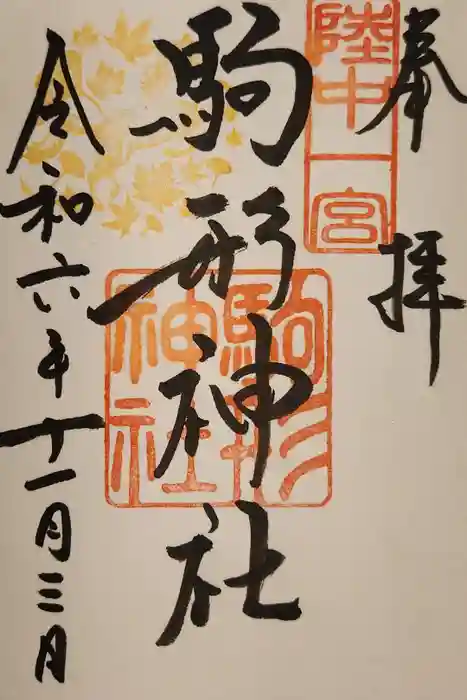 奉拝
陸中一宮
駒形神社
駒形
神社
令和六年十一月三日